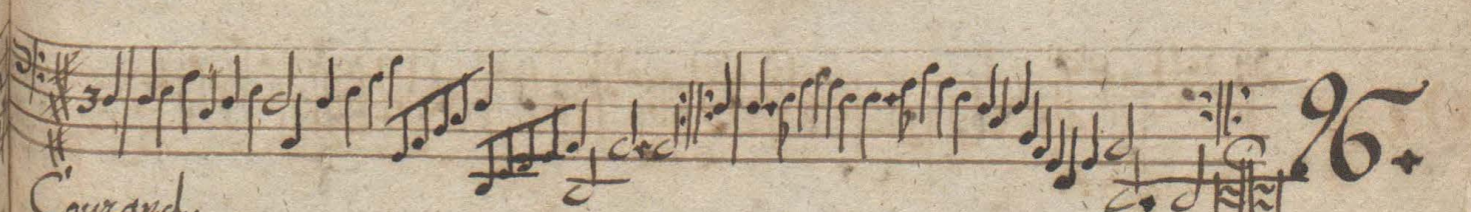 3
96.
Courand.